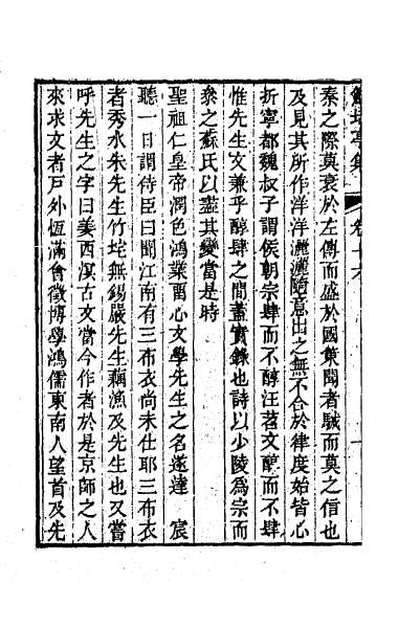 鮚埼亭集 卷十六 一
秦之際莫衰於左傳而盛於國策聞者駴而莫之信也
及見其所作洋洋灑灑隨意出之無不合於律度始皆心
折寧都魏叔子謂侯朝宗肆而不醇汪苕文醇而不肆
惟先生文兼乎醇肆之間蓋實錄也詩以少陵爲宗而
叅之蘇氏以盡其變當是時
聖祖仁皇帝潤色鴻業畱心文學先生之名遂達　宸
聽一日謂侍臣曰聞江南有三布衣尚未仕耶三布衣
者秀水朱先生竹垞無錫嚴先生藕漁及先生也又嘗
呼先生之字曰姜西溟古文當今作者於是京師之人
來求文者戸外恆滿會徵博學鴻儒東南人望首及先